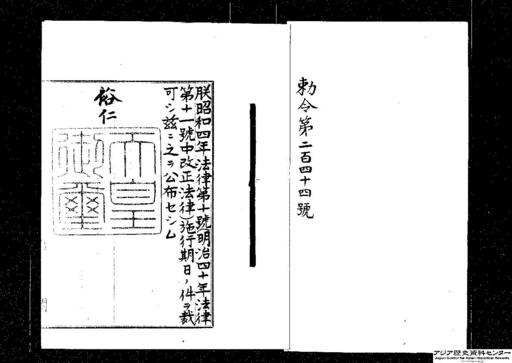 勅令第二百四十四號
朕昭和四年法律第十號(明治四十年法律
第十一號中改正法律)施行期日ノ件ヲ裁
可シ茲ニ之ヲ公布セシム
裕仁
天皇
御璽
アジア歴史資料センター
Japan Center for Asian Historical Records